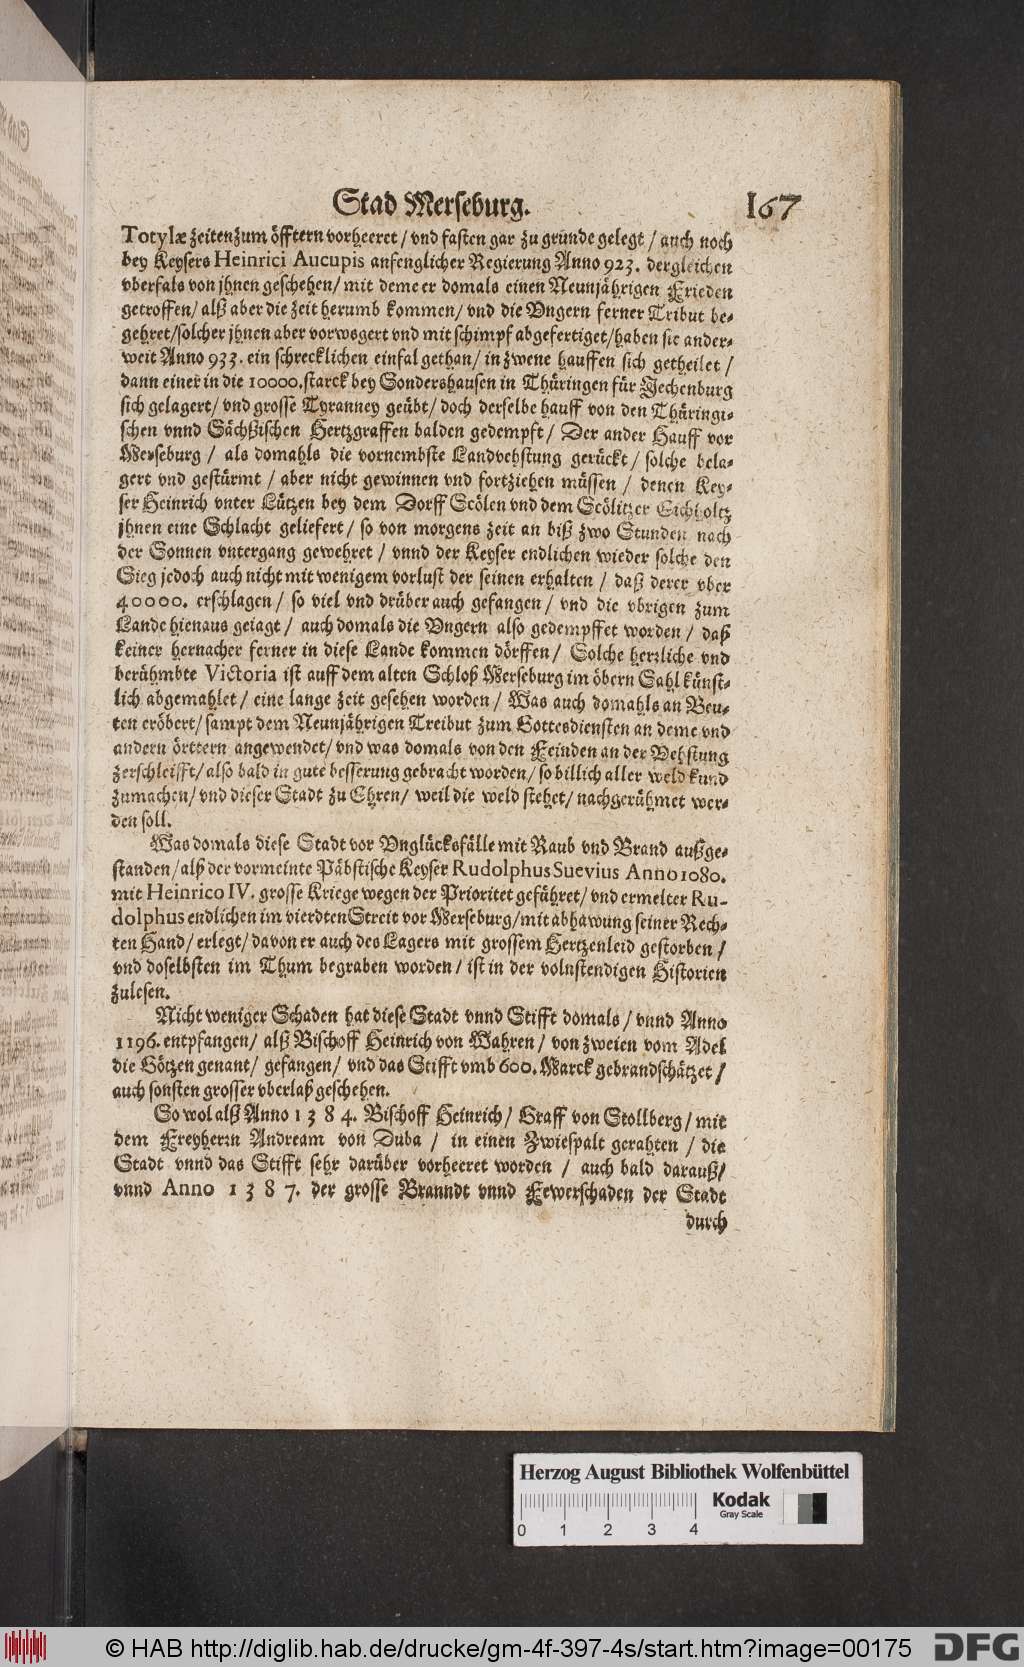 Stad Merseburg. 167
Totylæ zeiten zum öfftern vorheeret / vnd fasten gar zu grunde gelegt / auch noch
bey Keysers Heinrici Aucupis anfenglicher Regierung Anno 923. dergleichen
vberfals von jhnen geschehen / mit deme er domals einen Neunjährigen Frieden
getroffen / alß aber die zeit herumb kommen / vnd die Vngern ferner Tribut be-
gehret / solcher jhnen aber vorwegert vnd mit schimpf abgefertiget / haben sie ander-
weit Anno 933. ein schrecklichen einfal gethan / in zwene hauffen sich getheilet /
dann einer in die 10000. starck bey Sondershausen in Thüringen für Jechenburg
sich gelagert / vnd grosse Tyranney geübt / doch derselbe hauff von den Thüringi-
schen vnnd Sächßischen Hertzgraffen balden gedempft / Der ander Hauff vor
Merseburg / als domahls die vornembste Landvehstung gerückt / solche bela-
gert vnd gestürmt / aber nicht gewinnen vnd fortziehen müssen / denen Key-
ser Heinrich vnter Lützen bey dem Dorff Scölen vnd dem Scölitzer Eichholtz
jhnen eine Schlacht geliefert / so von morgens zeit an biß zwo Stunden nach
der Sonnen vntergang gewehret / vnnd der Keyser endlichen wieder solche den
Sieg jedoch auch nicht mit wenigem vorlust der seinen erhalten / daß derer vber
40000. erschlagen / so viel vnd drüber auch gefangen / vnd die vbrigen zum
Lande hienaus geiagt / auch domals die Vngern also gedempffet worden / daß
keiner hernacher ferner in diese Lande kommen dörffen / Solche herzliche vnd
berühmbte Victoria ist auff dem alten Schloß Merseburg im öbern Sahl künst-
lich abgemahlet / eine lange zeit gesehen worden / Was auch domahls an Beu-
ten eröbert / sampt dem Neunjährigen Treibut zum Gottesdiensten an deme vnd
andern örttern angewendet / vnd was domals von den Feinden an der Vehstung
zerschleifft / also bald in gute besserung gebracht worden / so billich aller weld kund
zumachen / vnd dieser Stadt zu Ehren / weil die weld stehet / nachgerühmet wer-
den soll.
Was domals diese Stadt vor Vnglücksfälle mit Raub vnd Brand außge-
standen / alß der vormeinte Päbstische Keyser Rudolphus Suevius Anno 1080.
mit Heinrico IV. grosse Kriege wegen der Prioritet geführet / vnd ermelter Ru-
dolphus endlichen im vierdten Streit vor Merseburg / mit abhawung seiner Rech-
ten Hand / erlegt / davon er auch des Lagers mit grossem Hertzenleid gestorben /
vnd doselbsten im Thum begraben worden / ist in der volnstendigen Historien
zulesen.
Nicht weniger Schaden hat diese Stadt vnnd Stifft domals / vnnd Anno
1196. entpfangen / alß Bischoff Heinrich von Wahren / von zweien vom Adel
die Götzen genant / gefangen / vnd das Stifft vmb 600. Marck gebrandschätzet /
auch sonsten grosser vberlaß geschehen.
So wol alß Anno 1384. Bischoff Heinrich / Graff von Stollberg / mit
dem Freyherzn Andream von Duba / in einen Zwiespalt gerahten / die
Stadt vnnd das Stifft sehr darüber vorheeret worden / auch bald darauß /
vnnd Anno 1387. der grosse Branndt vnnd Fewerschaden der Stadt
durch
Herzog August Bibliothek Wolfenbüttel
Kodak
Gray Scale
0 1 2 3 4
© HAB http://diglib.hab.de/drucke/gm-4f-397-4s/start.htm?image=00175 DFG